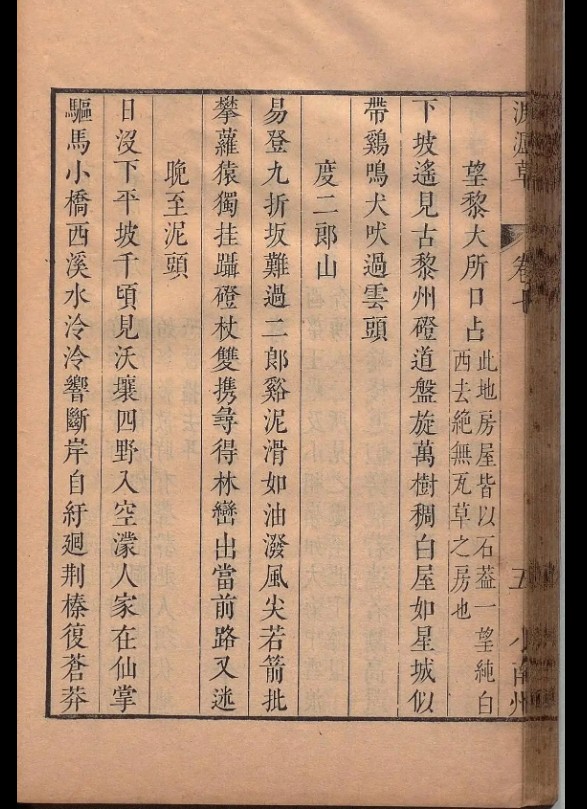 望黎大所口占
此地房屋皆以石葢一望純白
西去絶無瓦草之房也
下坡遙見古黎州磴道盤旋萬樹稠白屋如星城似
帶鷄鳴犬吠過雲頭
度二郞山
易登九折坂難過二郞谿泥滑如油潑風尖若箭批
攀蘿猿獨挂躡磴杖雙携㝷得林巒出當前路又迷
晩至泥頭
日沒下平坡千頃見沃壤四野入空濛人家在仙掌
驅馬小橋西溪水泠泠響斷岸自紆廻荆榛復蒼莽